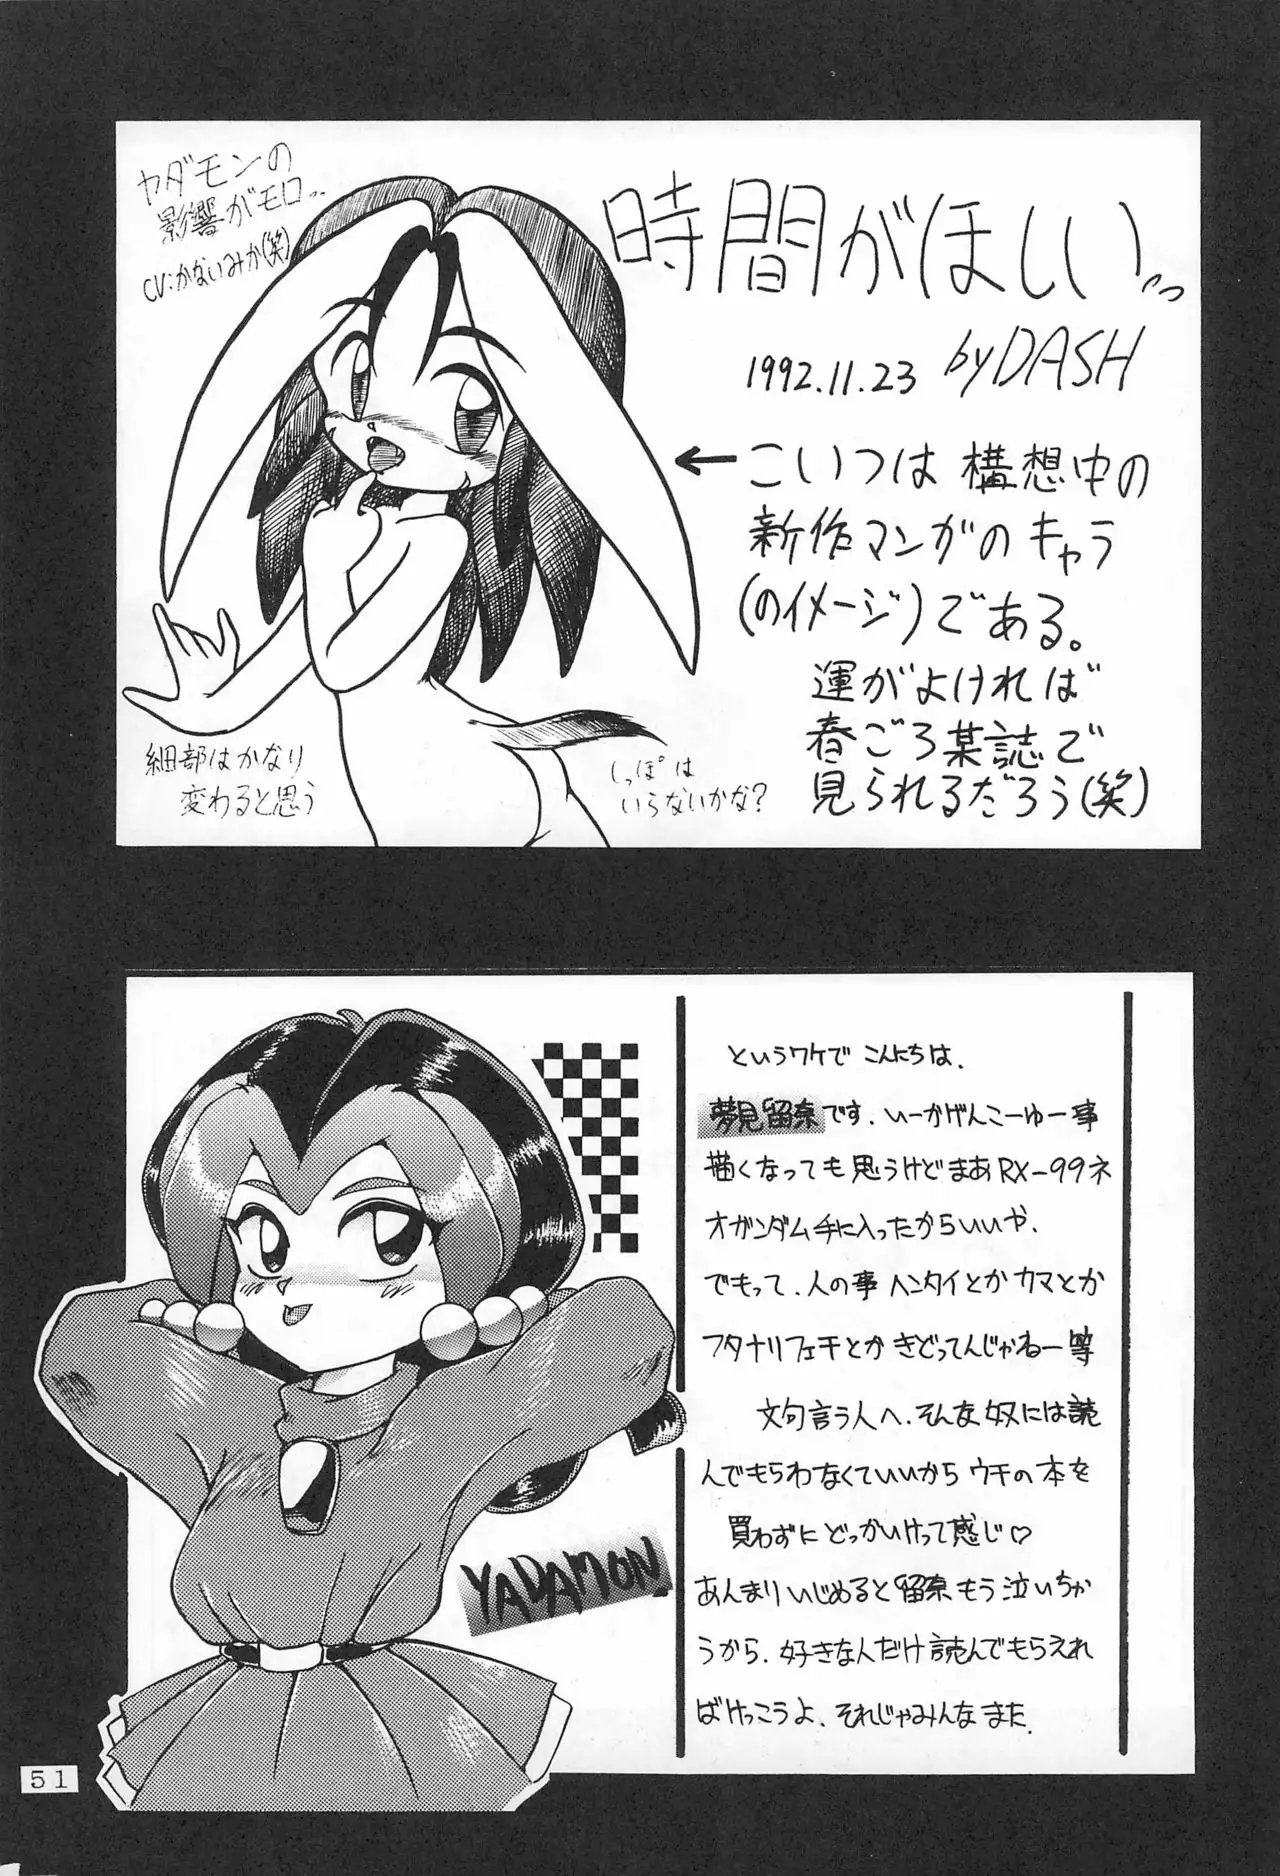 ヤダモンの
影響がモロ…
CV:かないみか(笑)
時間がほしい…
1992.11.23 by DASH
←こいつは構想中の
新作マンガのキャラ
(のイメージ)である。
運がよければ
春ごろ某誌で
見られるだろう(笑)
細部はかなり
変わると思う
しっぽは
いらないかな?
というワケで こんにちは.
夢見留奈です. いーかげんこーゆー事
描くなっても思うけどまあRX-99ネ
オガンダム手に入ったからいいや.
でもって. 人の事 ヘンタイとか カマとか
フタナリフェチとか きどってんじゃねー 等
文句言う人へ. そんな奴には読
んでもらわなくていいから ウチの本を
買わずに どっかいけって感じ♡
あんまりいじめると 留奈 もう泣いちゃ
うから. 好きな人だけ 読んでもらえれ
ばけっこうよ. それじゃみんな また.
YADAMON
51